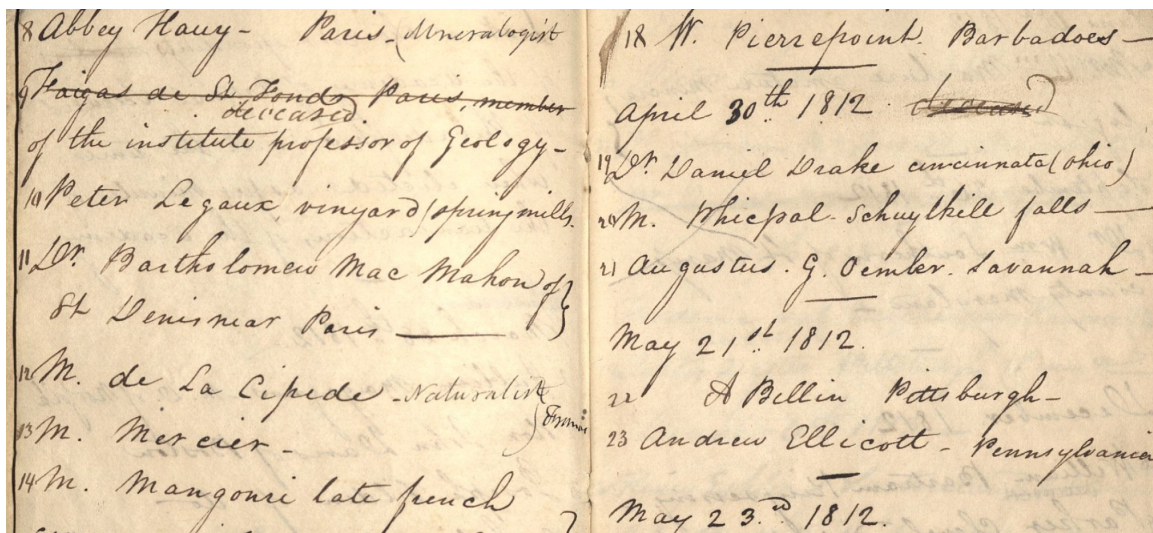 8 Abbey Hauy - Paris - (Mineralogist
9 Faigas de St Fonds Paris, member
deceased
of the institute professor of Geology -
10 Peter Legaux vinyard (springmills.
11 Dr. Bartholomew Mac Mahon of }
St Denis near Paris
12 M. de La Cipede - Naturalist
13 M. Mercier -
14 M. Mangouri late french
18 W. Pierrepoint. Barbadoes -
April 30th 1812. deceased
19 Dr. Daniel Drake cincinnata (ohio)
20 M. Phiepal - Schuylkill falls -
21 Augustus. G. Oemler. Savannah -
May 21st 1812.
22 A Bellin Pittsburgh -
23 Andrew Ellicott - Pennsylvania
May 23rd 1812.